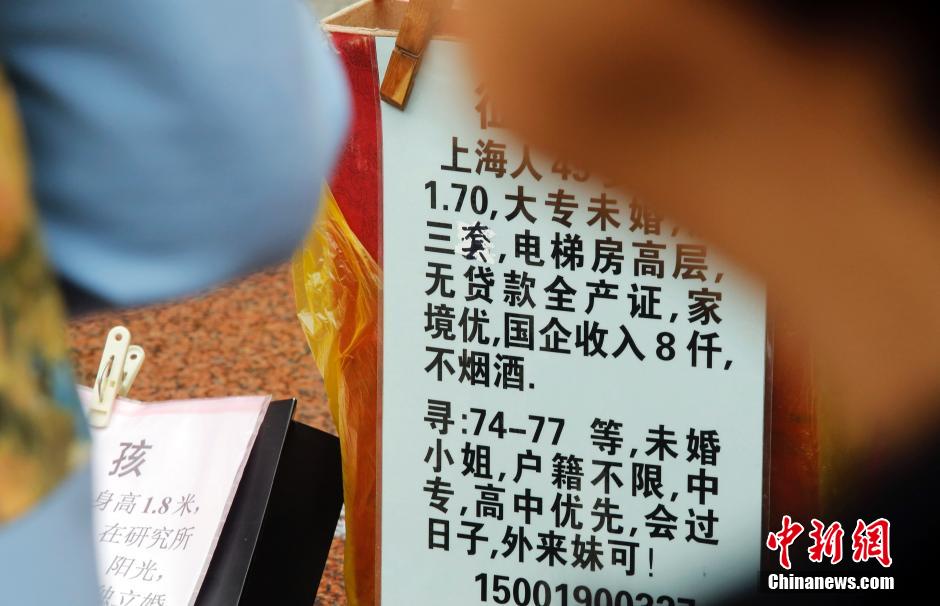 上海人
1.70,大专未婚,
三套,电梯房高层,
无贷款全产证,家
境优,国企收入8仟,
不烟酒.
寻:74-77 等,未婚
小姐,户籍不限,中
专,高中优先,会过
日子,外来妹可!
15001900327
孩
身高1.8米,
在研究所
阳光,
独立婚
中新网
Chinanews.com